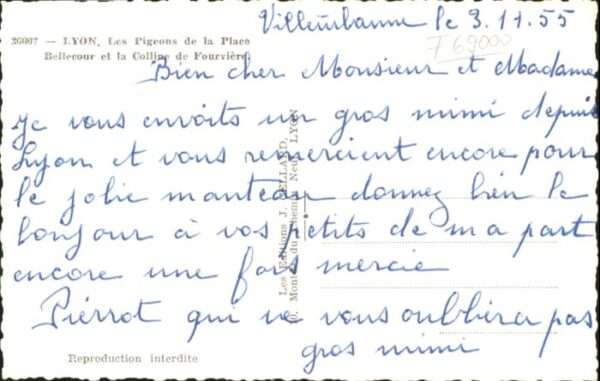 Villeurbanne le 3.11.55
T 69000
26007 - LYON, Les Pigeons de la Place
Bellecour et la Colline de Fourvière
Bien cher Monsieur et Madame
je vous envoits un gros mimi depuis
Lyon et vous remercient encore pour
le jolie manteau donnez bien le
bonjour à vos petits de ma part
encore une fois mercie
Pierrot qui ne vous oubliera pas
gros mimi
Les Editions J. CELLARD,
Montée du Chemin Neuf, LYON
Reproduction interdite